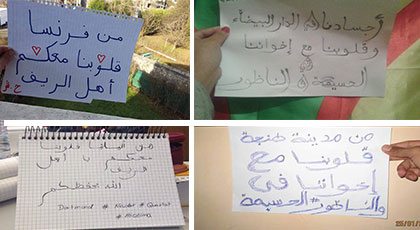 من فرنسا
قلوبنا معكم
أهل الريف!
أجسادنا في الدار البيضاء
وقلوبنا مع إخواننا
في
الحسيمة أو الناظور
من ألمانيا قلوبنا
معكم يا أهل
الريف
الله يحفظكم
Dortmund # Nador #
# Hoceima
من مدينة طنجة
قلوبنا مع
إخواننا في
والناظور الحسيمة